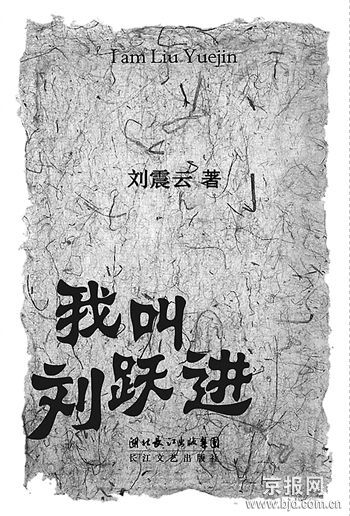 I am Liu Yuejin
刘震云 著
我叫
刘跃进
湖北长江出版集团
长江文艺出版社
京报网
www.bjd.com.cn